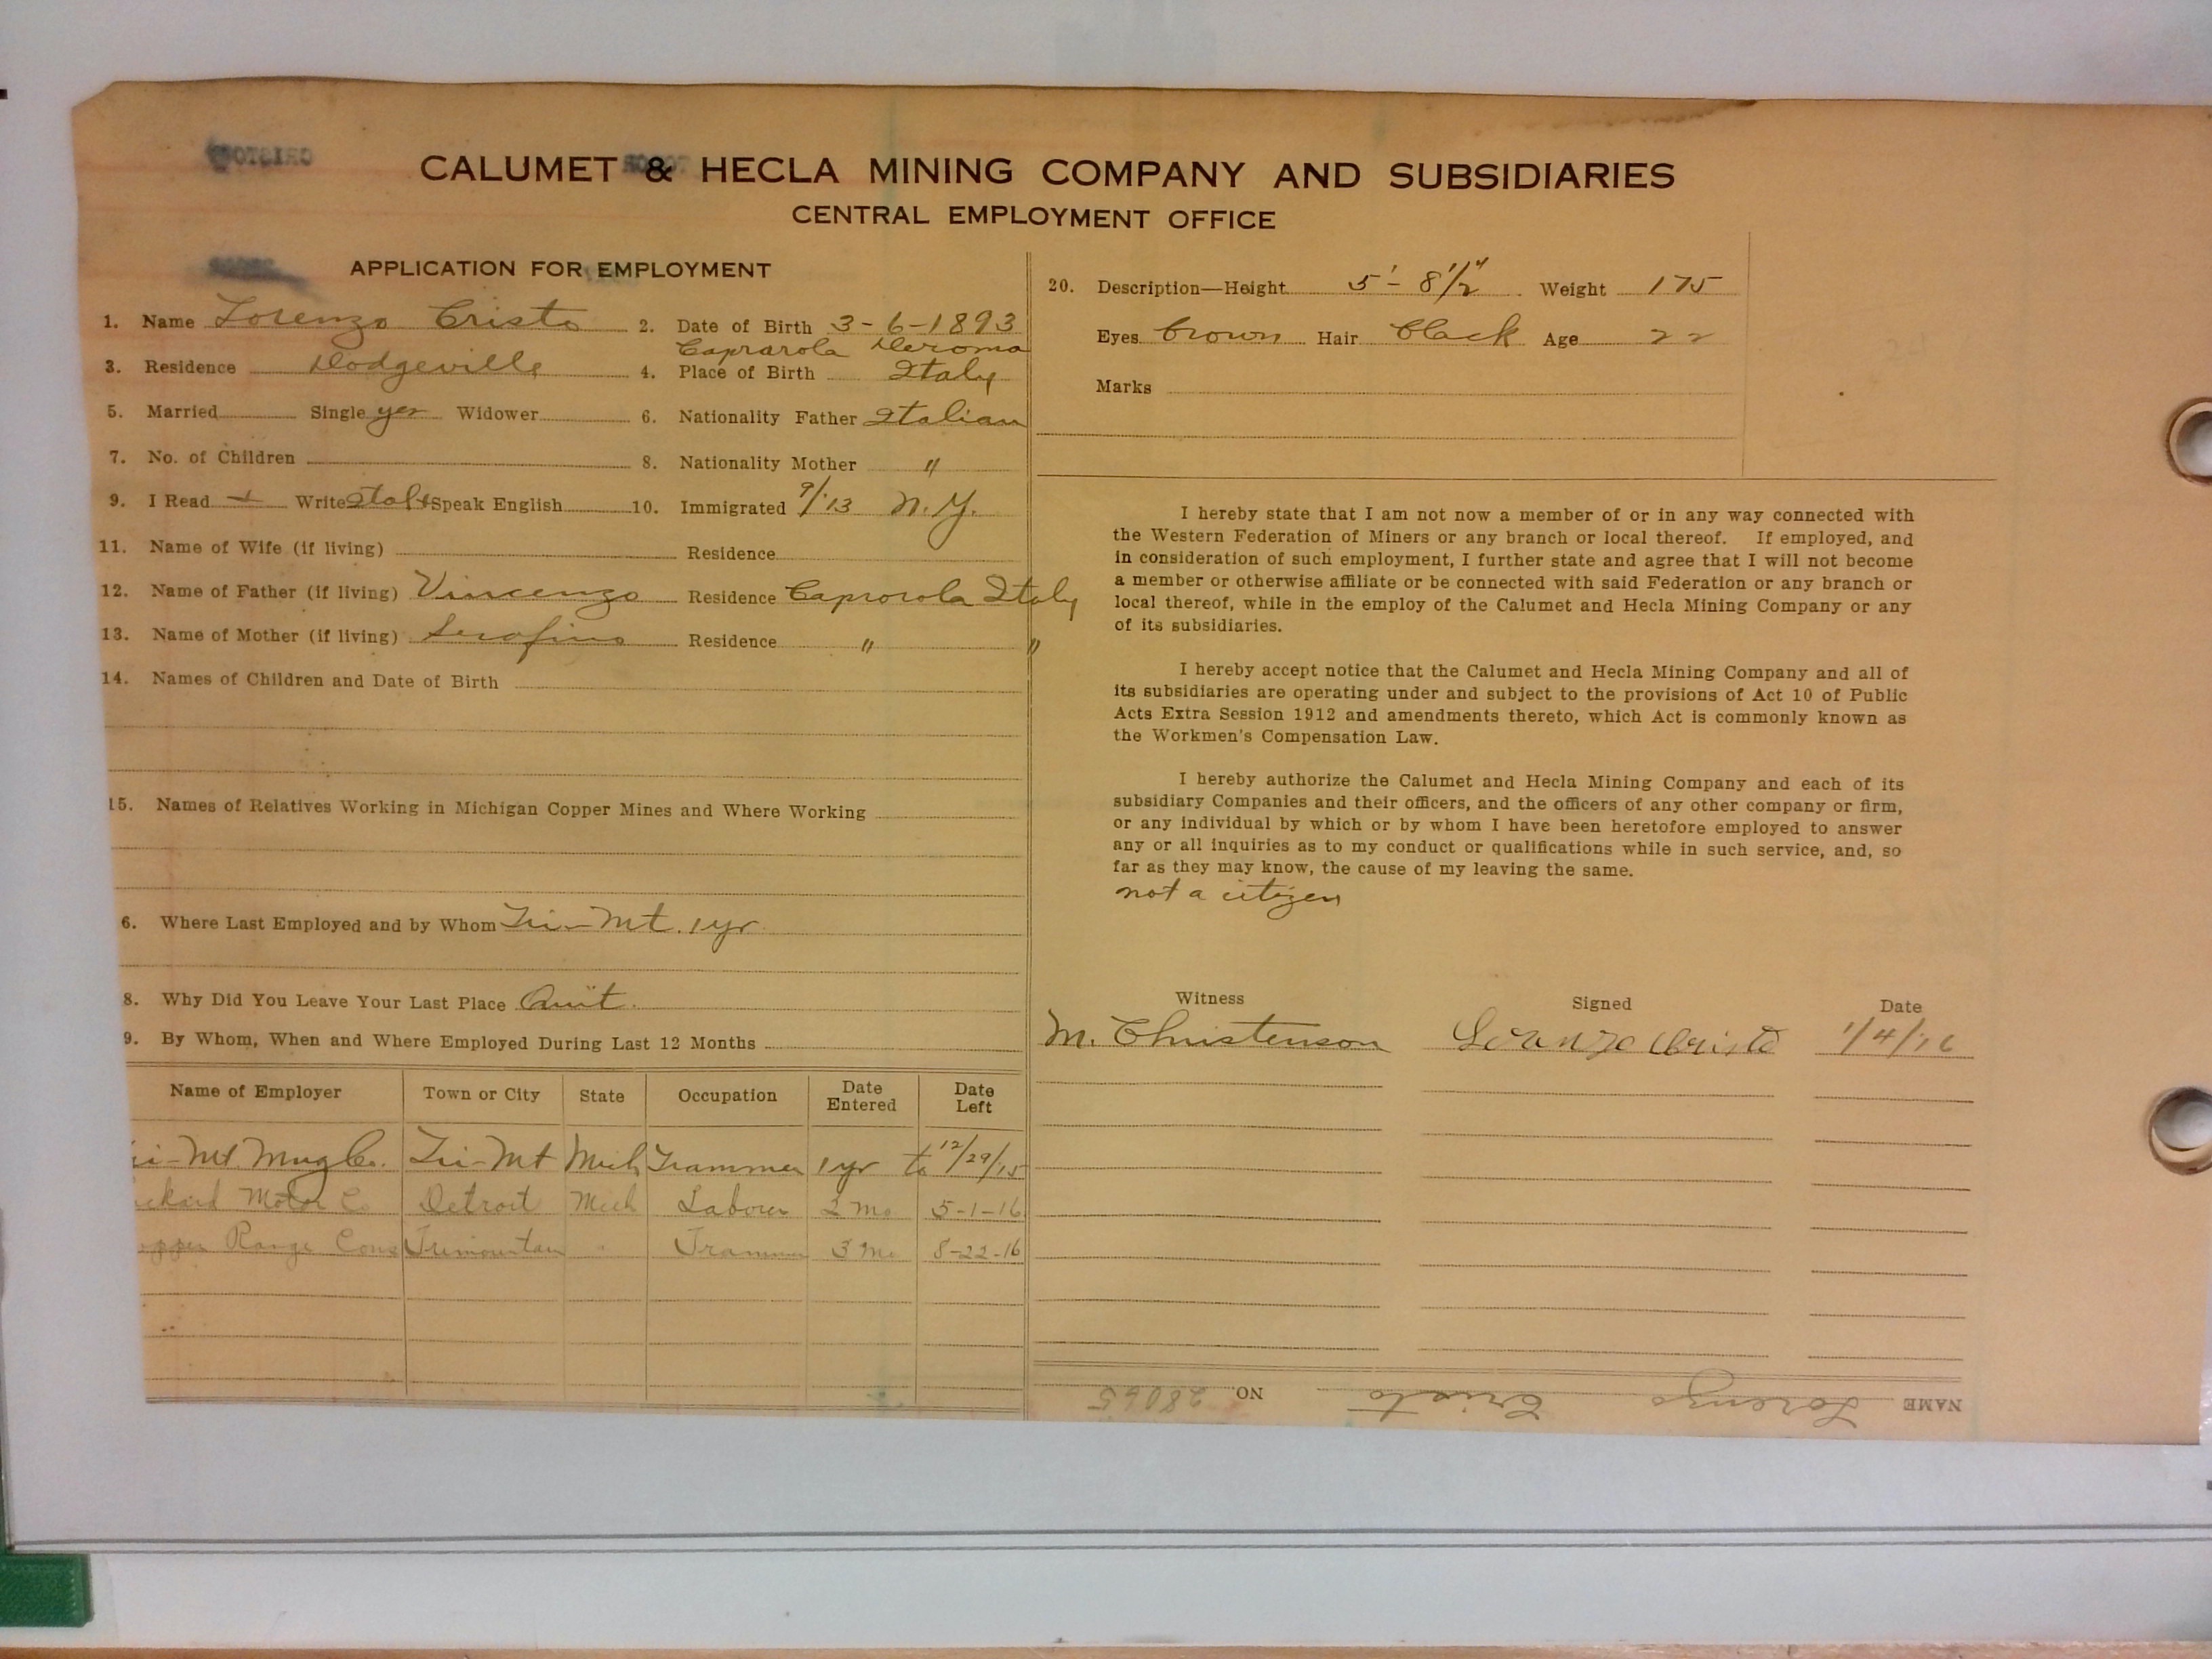 CALUMET & HECLA MINING COMPANY AND SUBSIDIARIES
CENTRAL EMPLOYMENT OFFICE
APPLICATION FOR EMPLOYMENT
1. Name Lorenzo Cristo 2. Date of Birth 3-6-1893
Caprarola Deroma
3. Residence Dodgeville 4. Place of Birth Italy
5. Married Single yes Widower 6. Nationality Father Italian
7. No. of Children 8. Nationality Mother "
9. I Read + Write Ital + Speak English 10. Immigrated 9/'13 N.Y.
11. Name of Wife (if living) Residence
12. Name of Father (if living) Vincenzo Residence Caprorola Italy
13. Name of Mother (if living) Serafino Residence " "
14. Names of Children and Date of Birth
15. Names of Relatives Working in Michigan Copper Mines and Where Working
6. Where Last Employed and by Whom Tri-Mt. 1 yr
8. Why Did You Leave Your Last Place Quit.
9. By Whom, When and Where Employed During Last 12 Months
Name of Employer Town or City State Occupation Date Entered Date Left
ri-Mt. Mng Co. Tri-Mt Mich Trammer 1 yr to 12/29/15
ackard Motor Co Detroit Mich Laborer 2 Mo 5-1-16
opper Range Cons Trimountain " Trammer 3 Mo 8-22-16
20. Description—Height 5'-8 1/2" Weight 175
Eyes brown Hair black Age 22
Marks
I hereby state that I am not now a member of or in any way connected with
the Western Federation of Miners or any branch or local thereof. If employed, and
in consideration of such employment, I further state and agree that I will not become
a member or otherwise affiliate or be connected with said Federation or any branch or
local thereof, while in the employ of the Calumet and Hecla Mining Company or any
of its subsidiaries.
I hereby accept notice that the Calumet and Hecla Mining Company and all of
its subsidiaries are operating under and subject to the provisions of Act 10 of Public
Acts Extra Session 1912 and amendments thereto, which Act is commonly known as
the Workmen's Compensation Law.
I hereby authorize the Calumet and Hecla Mining Company and each of its
subsidiary Companies and their officers, and the officers of any other company or firm,
or any individual by which or by whom I have been heretofore employed to answer
any or all inquiries as to my conduct or qualifications while in such service, and, so
far as they may know, the cause of my leaving the same.
not a citizen
Witness Signed Date
M. Christenson Loranzo Christo 1/4/16
NAME Lorenzo Cristo NO. 28065